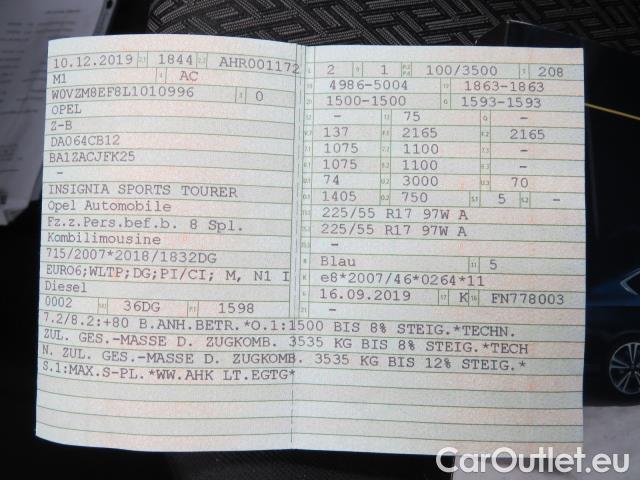 10.12.2019 2.1 1844 2.2 AHR001172
M1 4 AC
W0VZM8EF8L1010996 3 0
OPEL
Z-B
DA064CB12
BA1ZACJFK25
-
INSIGNIA SPORTS TOURER
Opel Automobile
Fz.z.Pers.bef.b. 8 Spl.
Kombilimousine
715/2007*2018/1832DG
EURO6;WLTP;DG;PI/CI; M, N1 I
Diesel
0002 36DG P.1 1598
L 2 9 1 P.2 P.4 100/3500 T 208
18 4986-5004 19 1863-1863
20 1500-1500 G 1593-1593
12 - 13 75 Q -
V.7 137 F.1 2165 F.2 2165
7.1 1075 8.1 1100 -
1075 1100 -
U.1 74 U.2 3000 U.3 70
O.1 1405 O.2 750 S.1 5 S.2 -
15.1 225/55 R17 97W A
15.2 225/55 R17 97W A
15.3 -
R Blau 11 5
K e8*2007/46*0264*11
6 16.09.2019 17 K 16 FN778003
21 -
7.2/8.2:+80 B.ANH.BETR.*O.1:1500 BIS 8% STEIG.*TECHN.
ZUL. GES.-MASSE D. ZUGKOMB. 3535 KG BIS 8% STEIG.*TECH
N. ZUL. GES.-MASSE D. ZUGKOMB. 3535 KG BIS 12% STEIG.*
S.1:MAX.S-PL.*WW.AHK LT.EGTG*
CarOutlet.eu